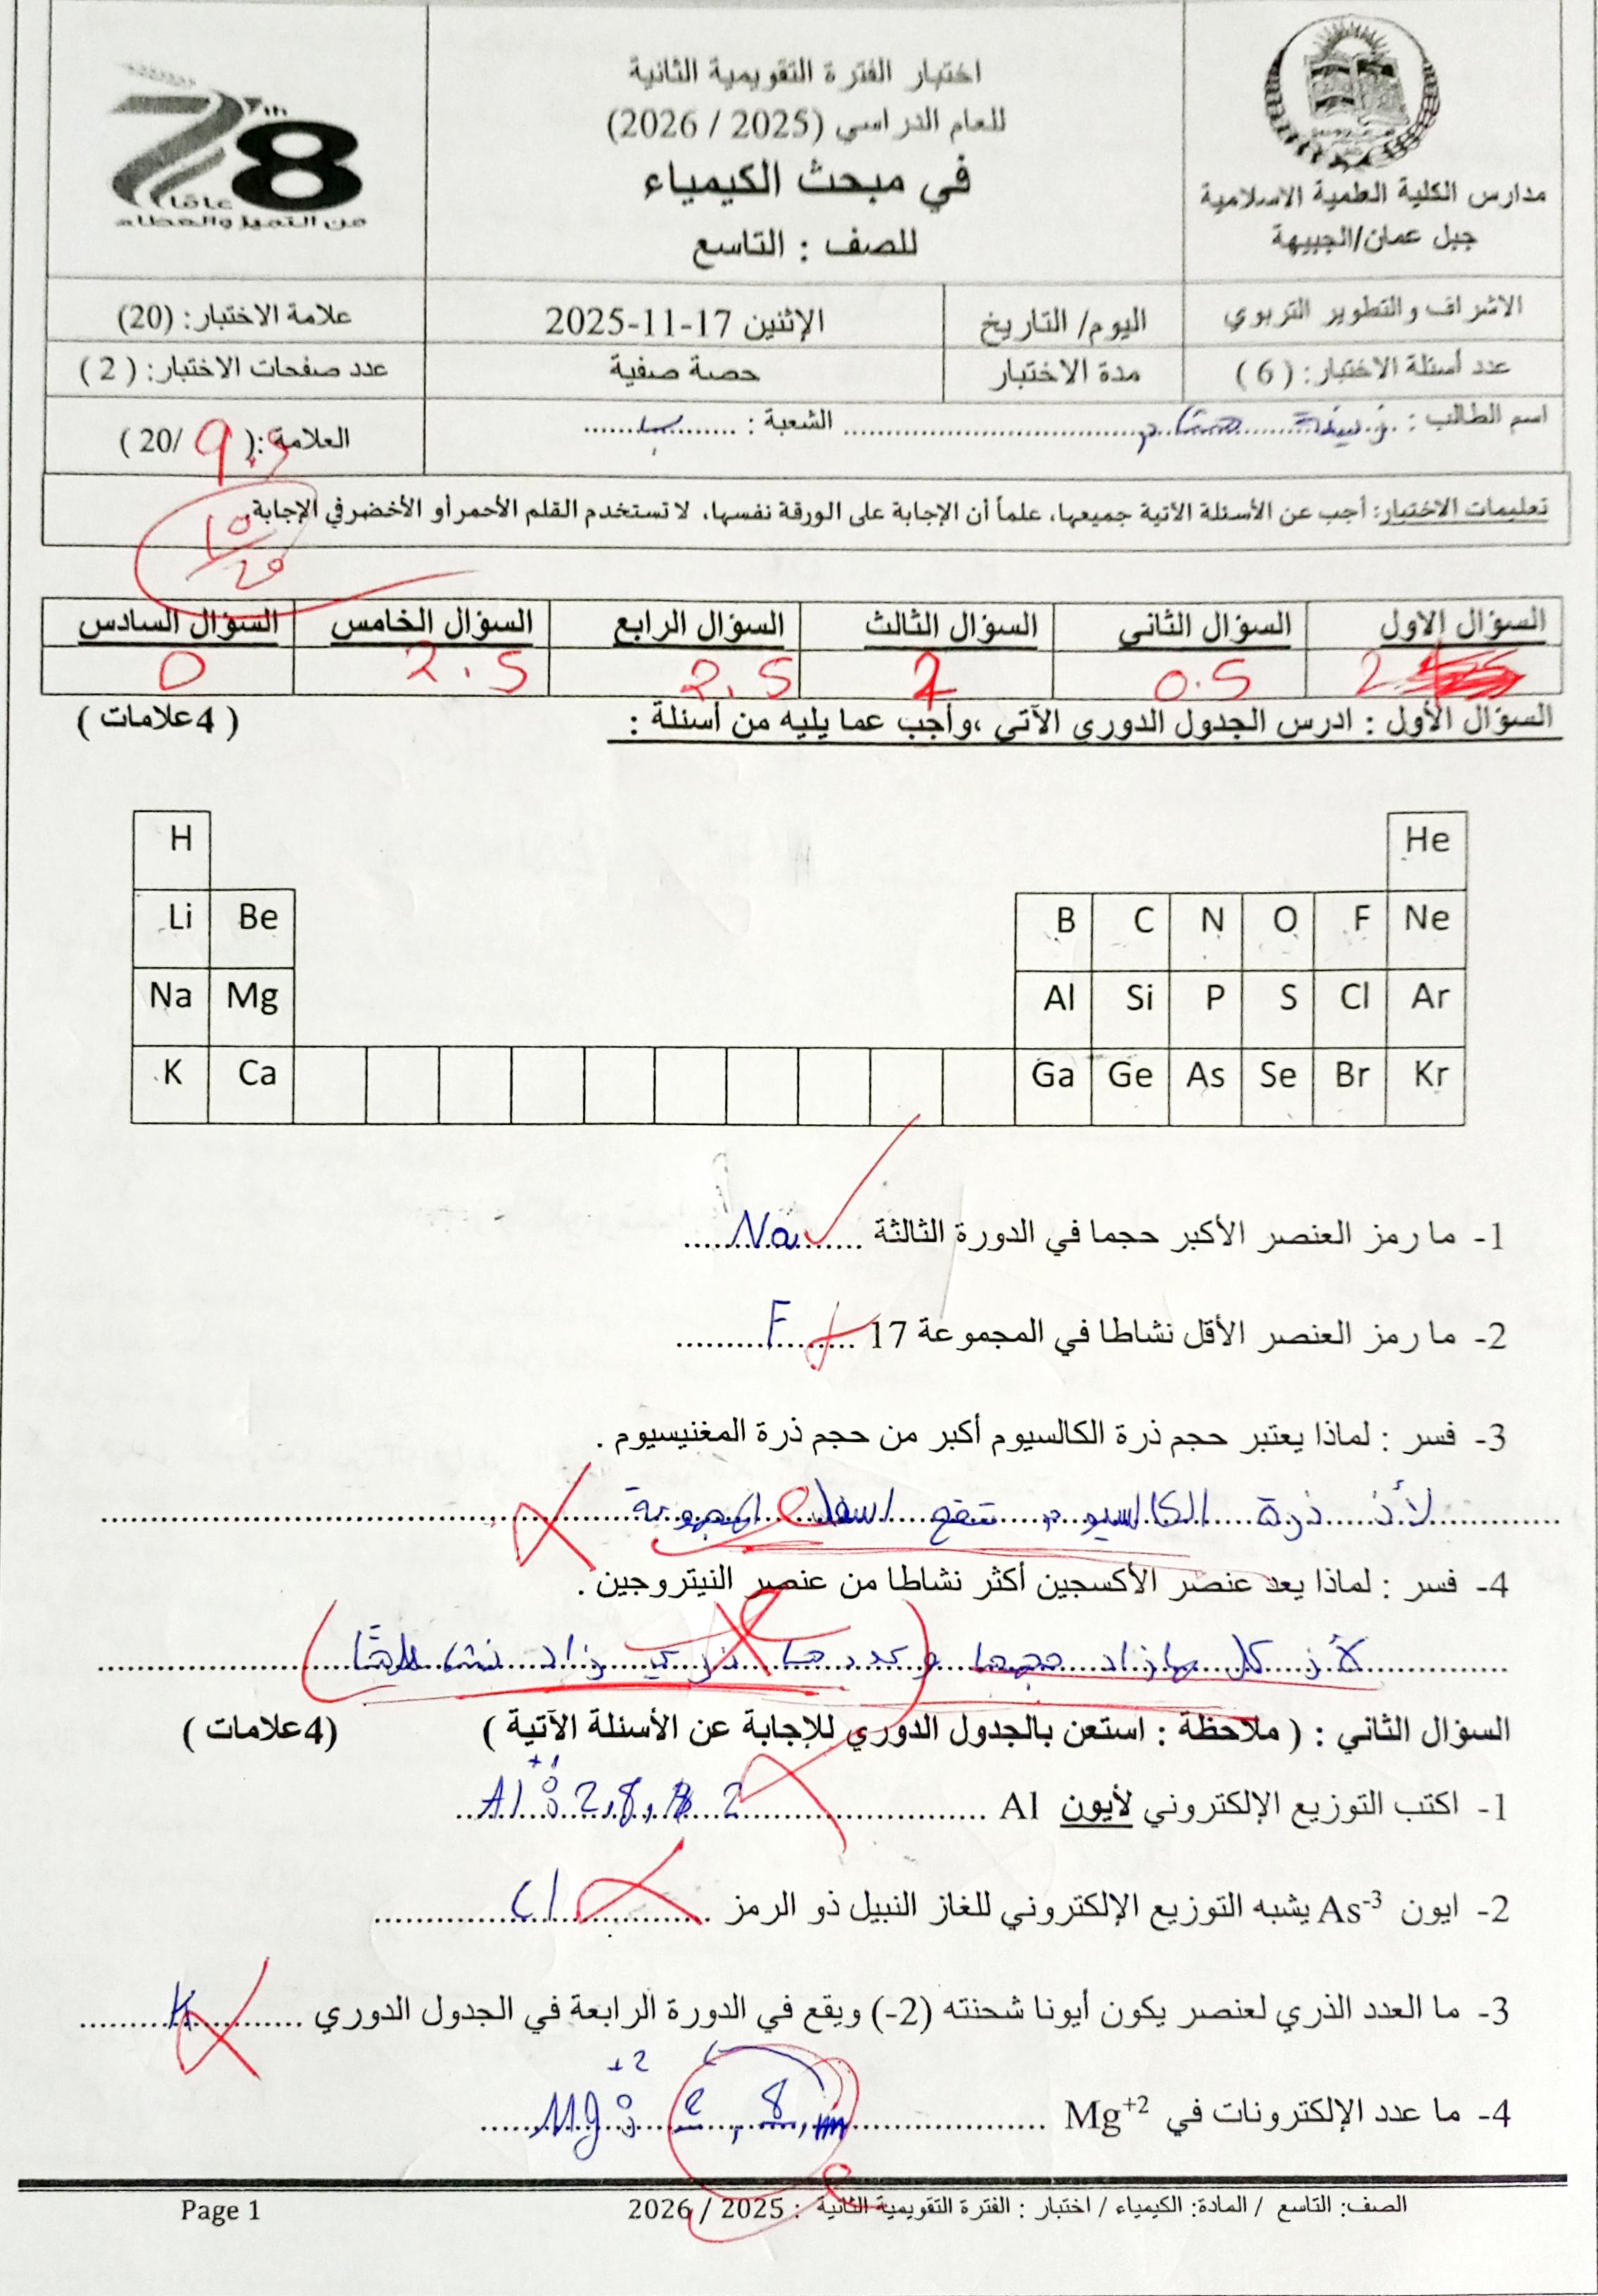 78
عامًا
من التميز والعطاء
اختبار الفترة التقويمية الثانية
للعام الدراسي (2025 / 2026)
في مبحث الكيمياء
للصف : التاسع
مدارس الكلية العلمية الاسلامية
جبل عمان/الجبيهة
الاشراف والتطوير التربوي
اليوم/ التاريخ
الإثنين 17-11-2025
علامة الاختبار: (20)
عدد أسئلة الاختبار: ( 6 )
مدة الاختبار
حصة صفية
عدد صفحات الاختبار: ( 2 )
اسم الطالب : .......... الشعبة : ..... ب .....
العلامة :( 9.5 /20 )
تعليمات الاختبار: أجب عن الأسئلة الآتية جميعها، علماً أن الإجابة على الورقة نفسها، لا تستخدم القلم الأحمر أو الأخضر في الإجابة.
10
20
السؤال الاول السؤال الثاني السؤال الثالث السؤال الرابع السؤال الخامس السؤال السادس
2 0.5 2 2.5 2.5 0
السؤال الأول : ادرس الجدول الدوري الآتي ،وأجب عما يليه من أسئلة : ( 4علامات )
H He
Li Be B C N O F Ne
Na Mg Al Si P S Cl Ar
K Ca Ga Ge As Se Br Kr
1- ما رمز العنصر الأكبر حجما في الدورة الثالثة ..... Na .....
2- ما رمز العنصر الأقل نشاطا في المجموعة 17 ..... F .....
3- فسر : لماذا يعتبر حجم ذرة الكالسيوم أكبر من حجم ذرة المغنيسيوم .
لأن ذرة الكالسيوم تقع اسفل المجموعة
4- فسر : لماذا يعد عنصر الأكسجين أكثر نشاطا من عنصر النيتروجين .
لأن كل ما زاد حجمها وعددها الذري زاد نشاطها
السؤال الثاني : ( ملاحظة : استعن بالجدول الدوري للإجابة عن الأسئلة الآتية ) (4علامات )
1- اكتب التوزيع الإلكتروني لأيون Al ..... Al⁺¹: 2,8, 2 .....
2- ايون As⁻³ يشبه التوزيع الإلكتروني للغاز النبيل ذو الرمز ..... Cl .....
3- ما العدد الذري لعنصر يكون أيونا شحنته (2-) ويقع في الدورة الرابعة في الجدول الدوري ..... K .....
4- ما عدد الإلكترونات في Mg⁺² ..... Mg⁺²: 2, 8, .....
الصف: التاسع / المادة: الكيمياء / اختبار : الفترة التقويمية الثانية : 2025 / 2026
Page 1